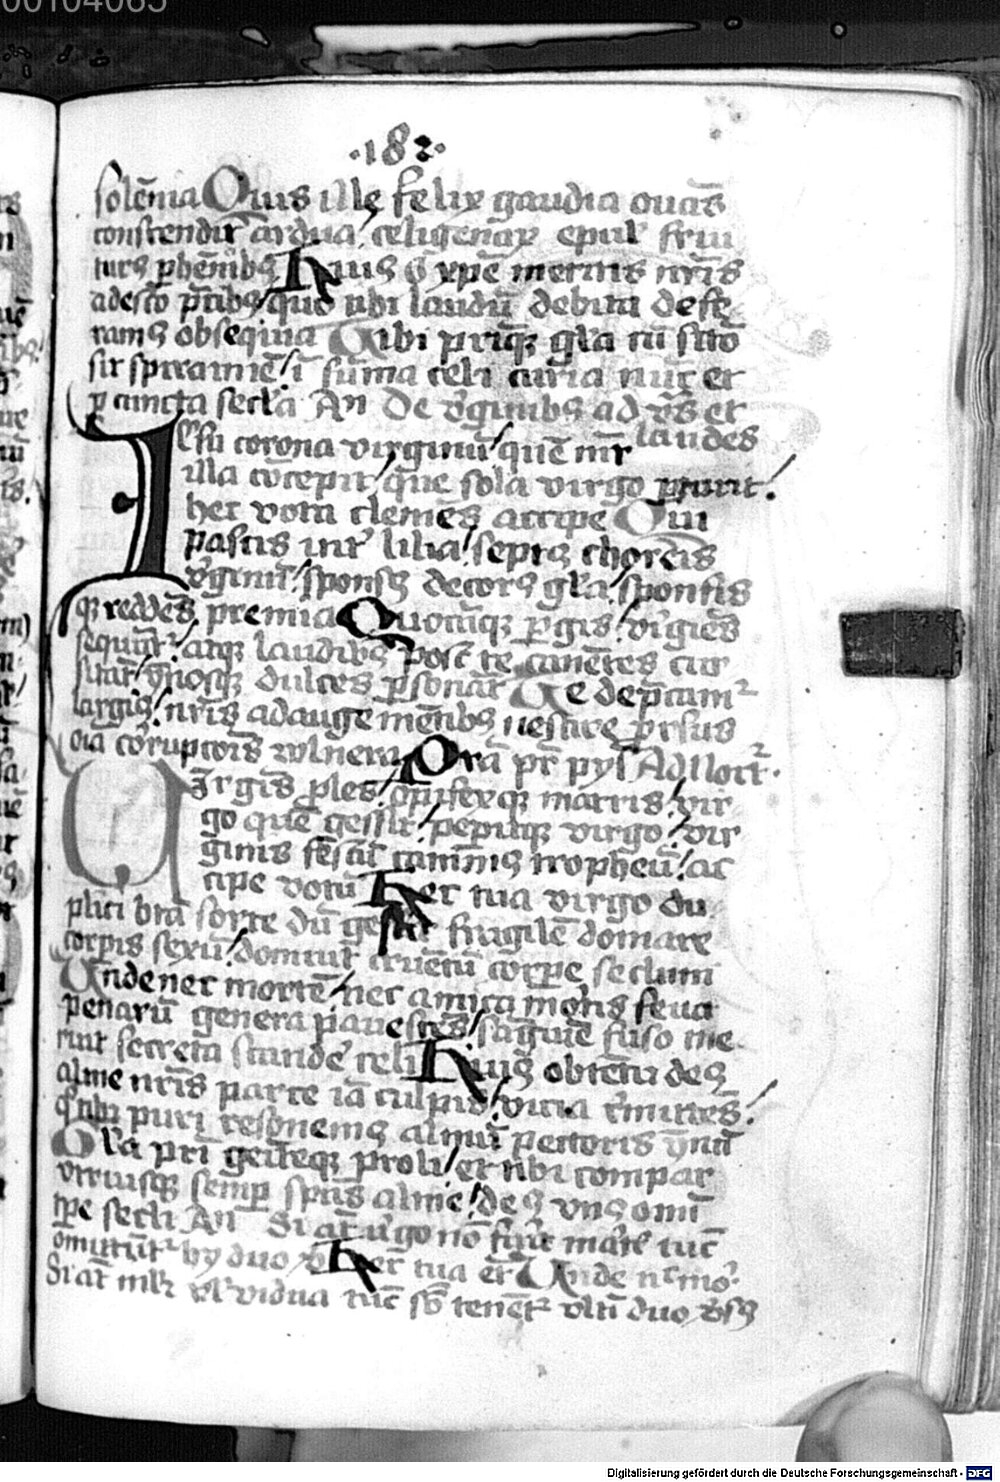 00104065
·182·
solēnia Quis ille felix gaudia ouās
conscendit ardua celigenaꝝ epul' frui
turꝰ ꝑhēnibꝰ Huiꝰ o xp̄e meritis nr̄is
adesto p̄cibꝰ quo tibi laudū debita defe
ramꝰ obsequia Tibi pr̄iqꝫ gl'a cū sc̄tō
sit spiramīe ī sūma celi curia nūc et
ꝑ cuncta secl'a An̄ De v̓ginibꝰ ad v̓s et
laudes
Iesu corona virginū quē mr̄
illa cōcepit que sola virgo parturit
hec vota clemēs accipe Qui
pascis int̓ lilia septꝰ choreis
v̓ginū sponsꝰ decorꝰ gl'a sponsis
qꝫ reddēs premia Quocūqꝫ ꝑgis v̓giēs
sequūt̉ atqꝫ laudibꝰ post te canētes cur
sitāt ym̄osqꝫ dulces ꝑsonāt Te dep̄cam̉
largiꝰ nr̄is adauge mētibꝰ nescire prorsus
oīa corruptōis vulnera Orā pr̄ pys̄ Ad Noct̉
Virgīs ꝓles opifexqꝫ matris vir
go quē gessit peperitqꝫ virgo vir
ginis festū canimꝰ tropheū ac
cipe votū Hec tua virgo du
plici btā sorte dū gestit fragilē domare
corpis sexū domuit cruētū corꝑe seclum
Unde nec mortē nec amica mortis seua
penarū genera pauescēs sāguīe fuso me
ruit secreta scande̓ celi Huiꝰ obtētu deꝰ
alme nr̄is parce iā culpis vicia r̓mittēs
q̄ tibi puri resonemꝰ almū pectoris ymnū
Gl'a pr̄i genitēqꝫ proli et tibi compar
vtriusqꝫ semꝑ spūs alme deꝰ vnꝰ omī
tp̄e secli An̄ Si aūt v̓go nō fūit mar̄t tūc
omittūt̉ hy duo v̓ Hec tua et̄ Unde n̄c mo̓
Si aūt ml̓r vl̓ vidua tūc sb̄ tenēt̉ vltī duo v̓sꝰ
Digitalisierung gefördert durch die Deutsche Forschungsgemeinschaft - DFG